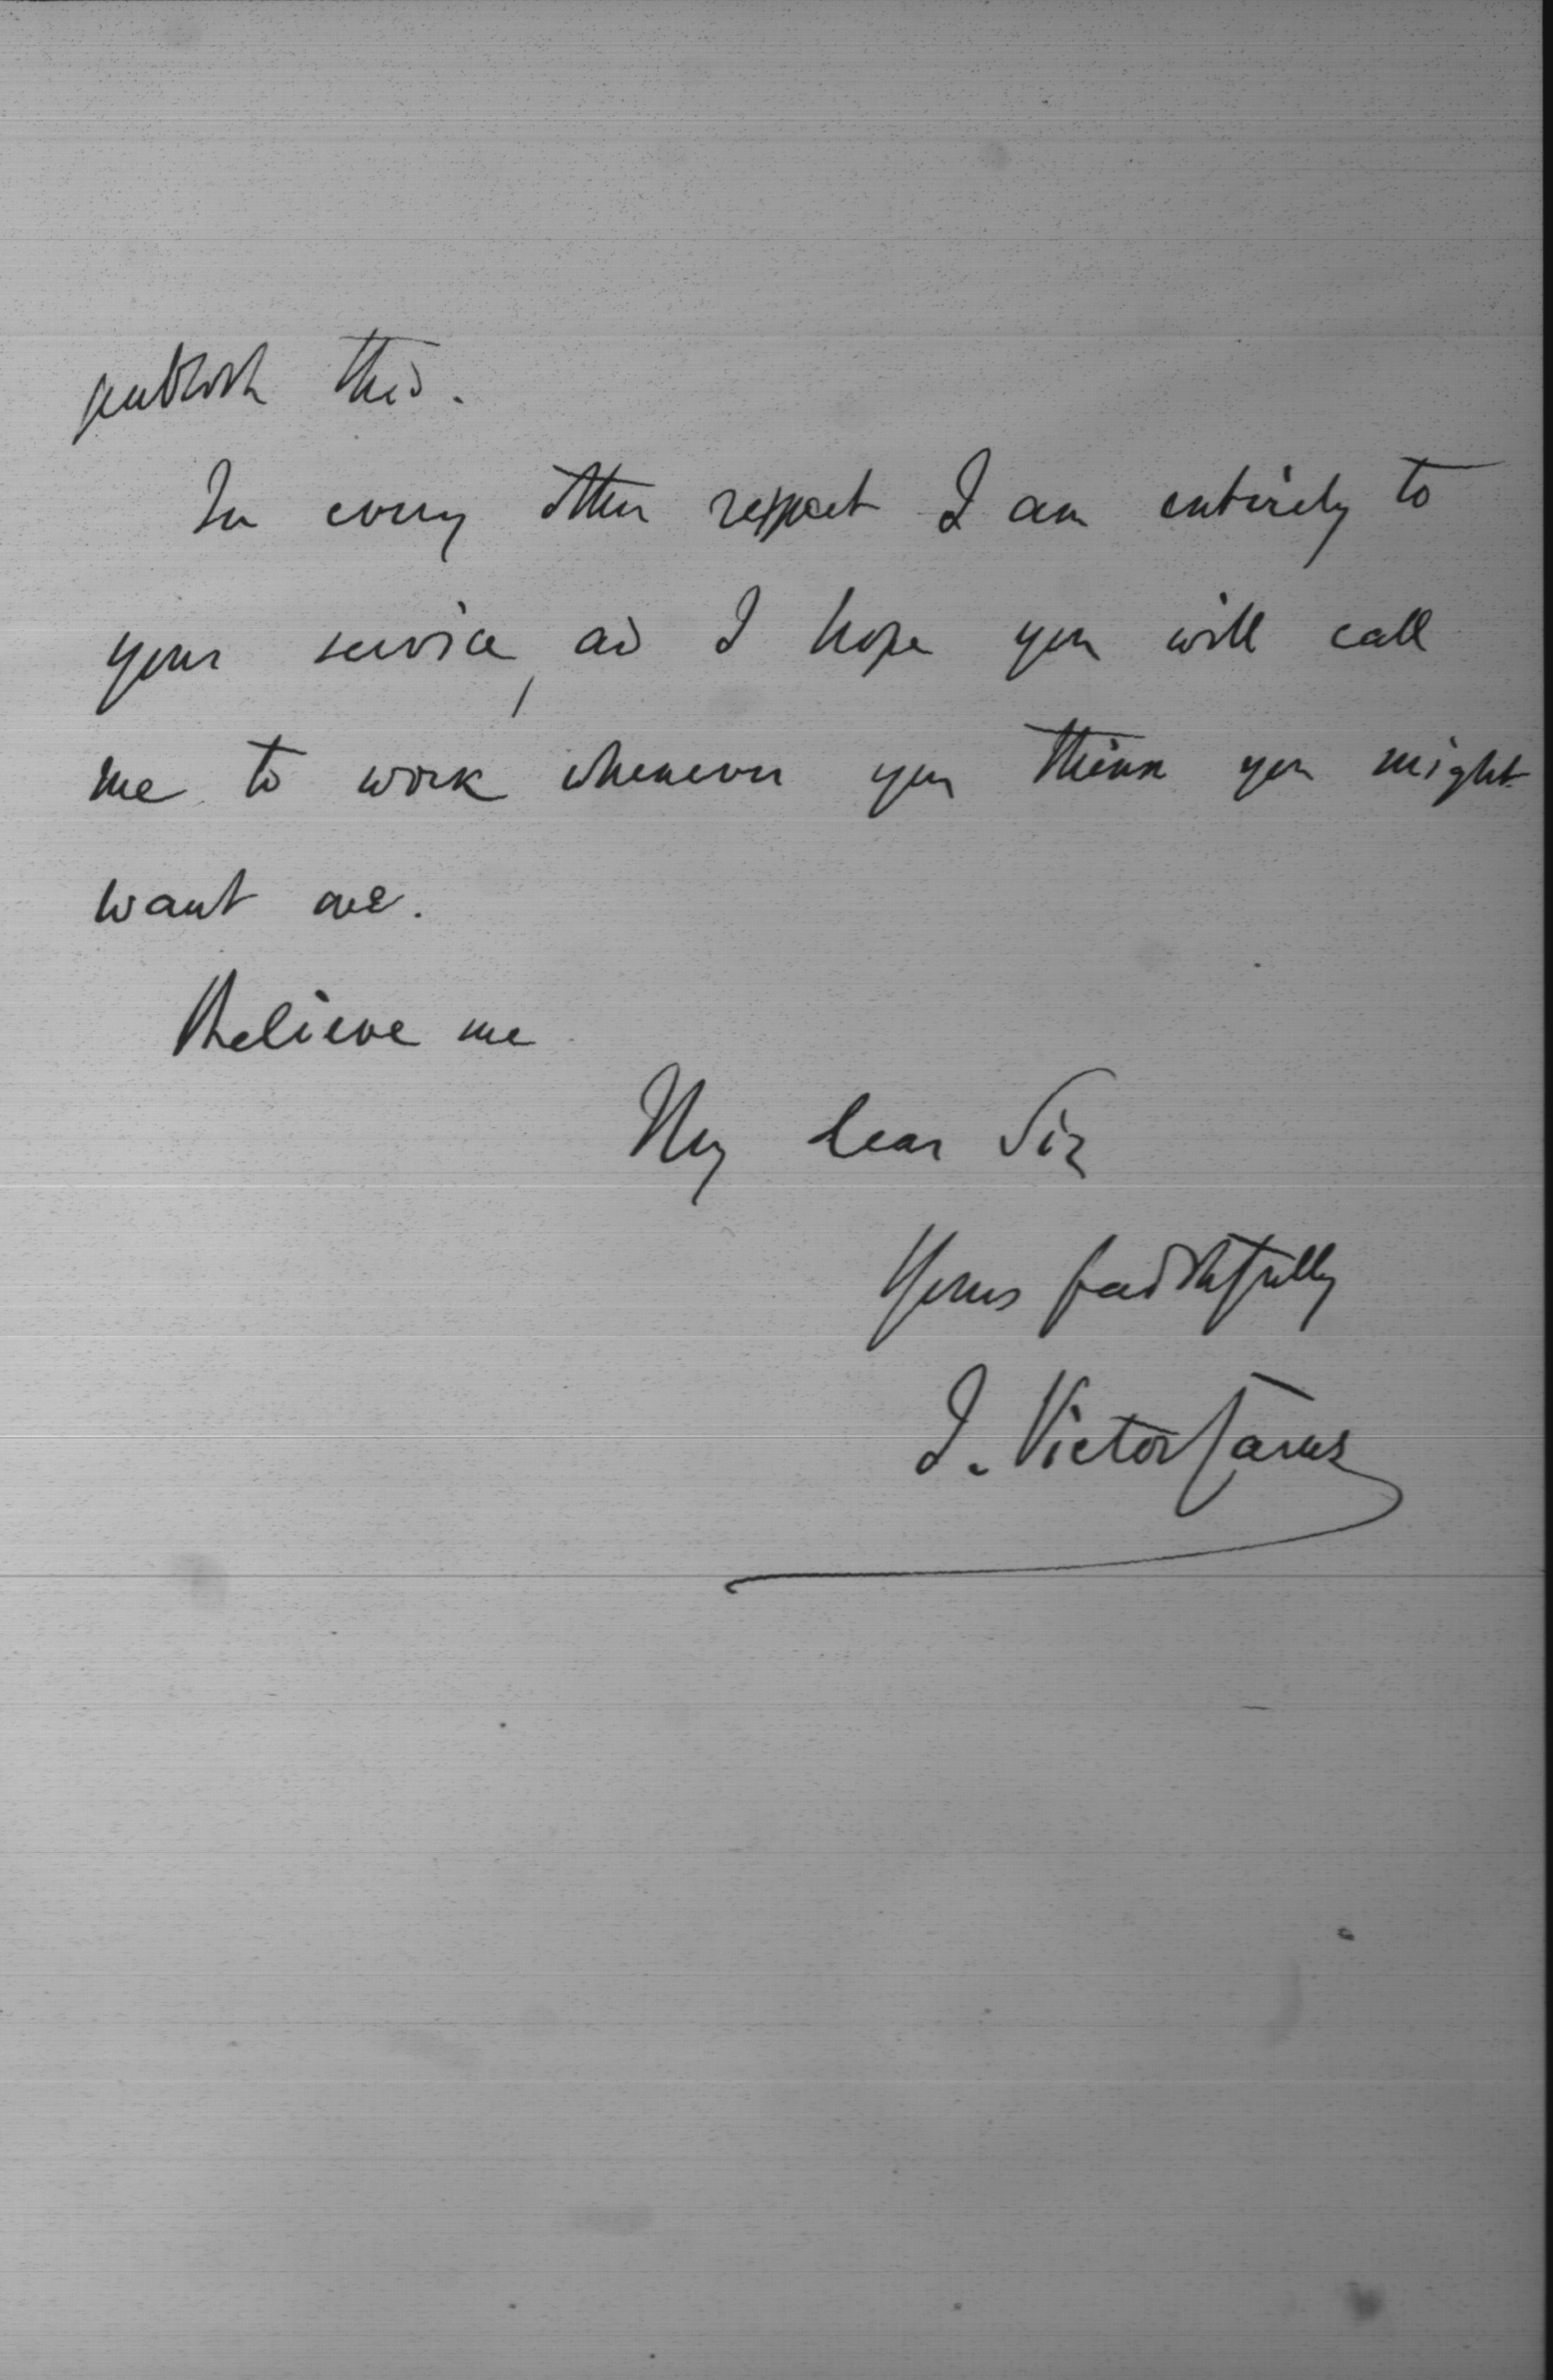 publish this.
In every other respect I am entirely to
your service, as I hope you will call
me to work whenever you think you might
want me.
Believe me
My dear Sir
Yours faithfully
J. Victor Carus